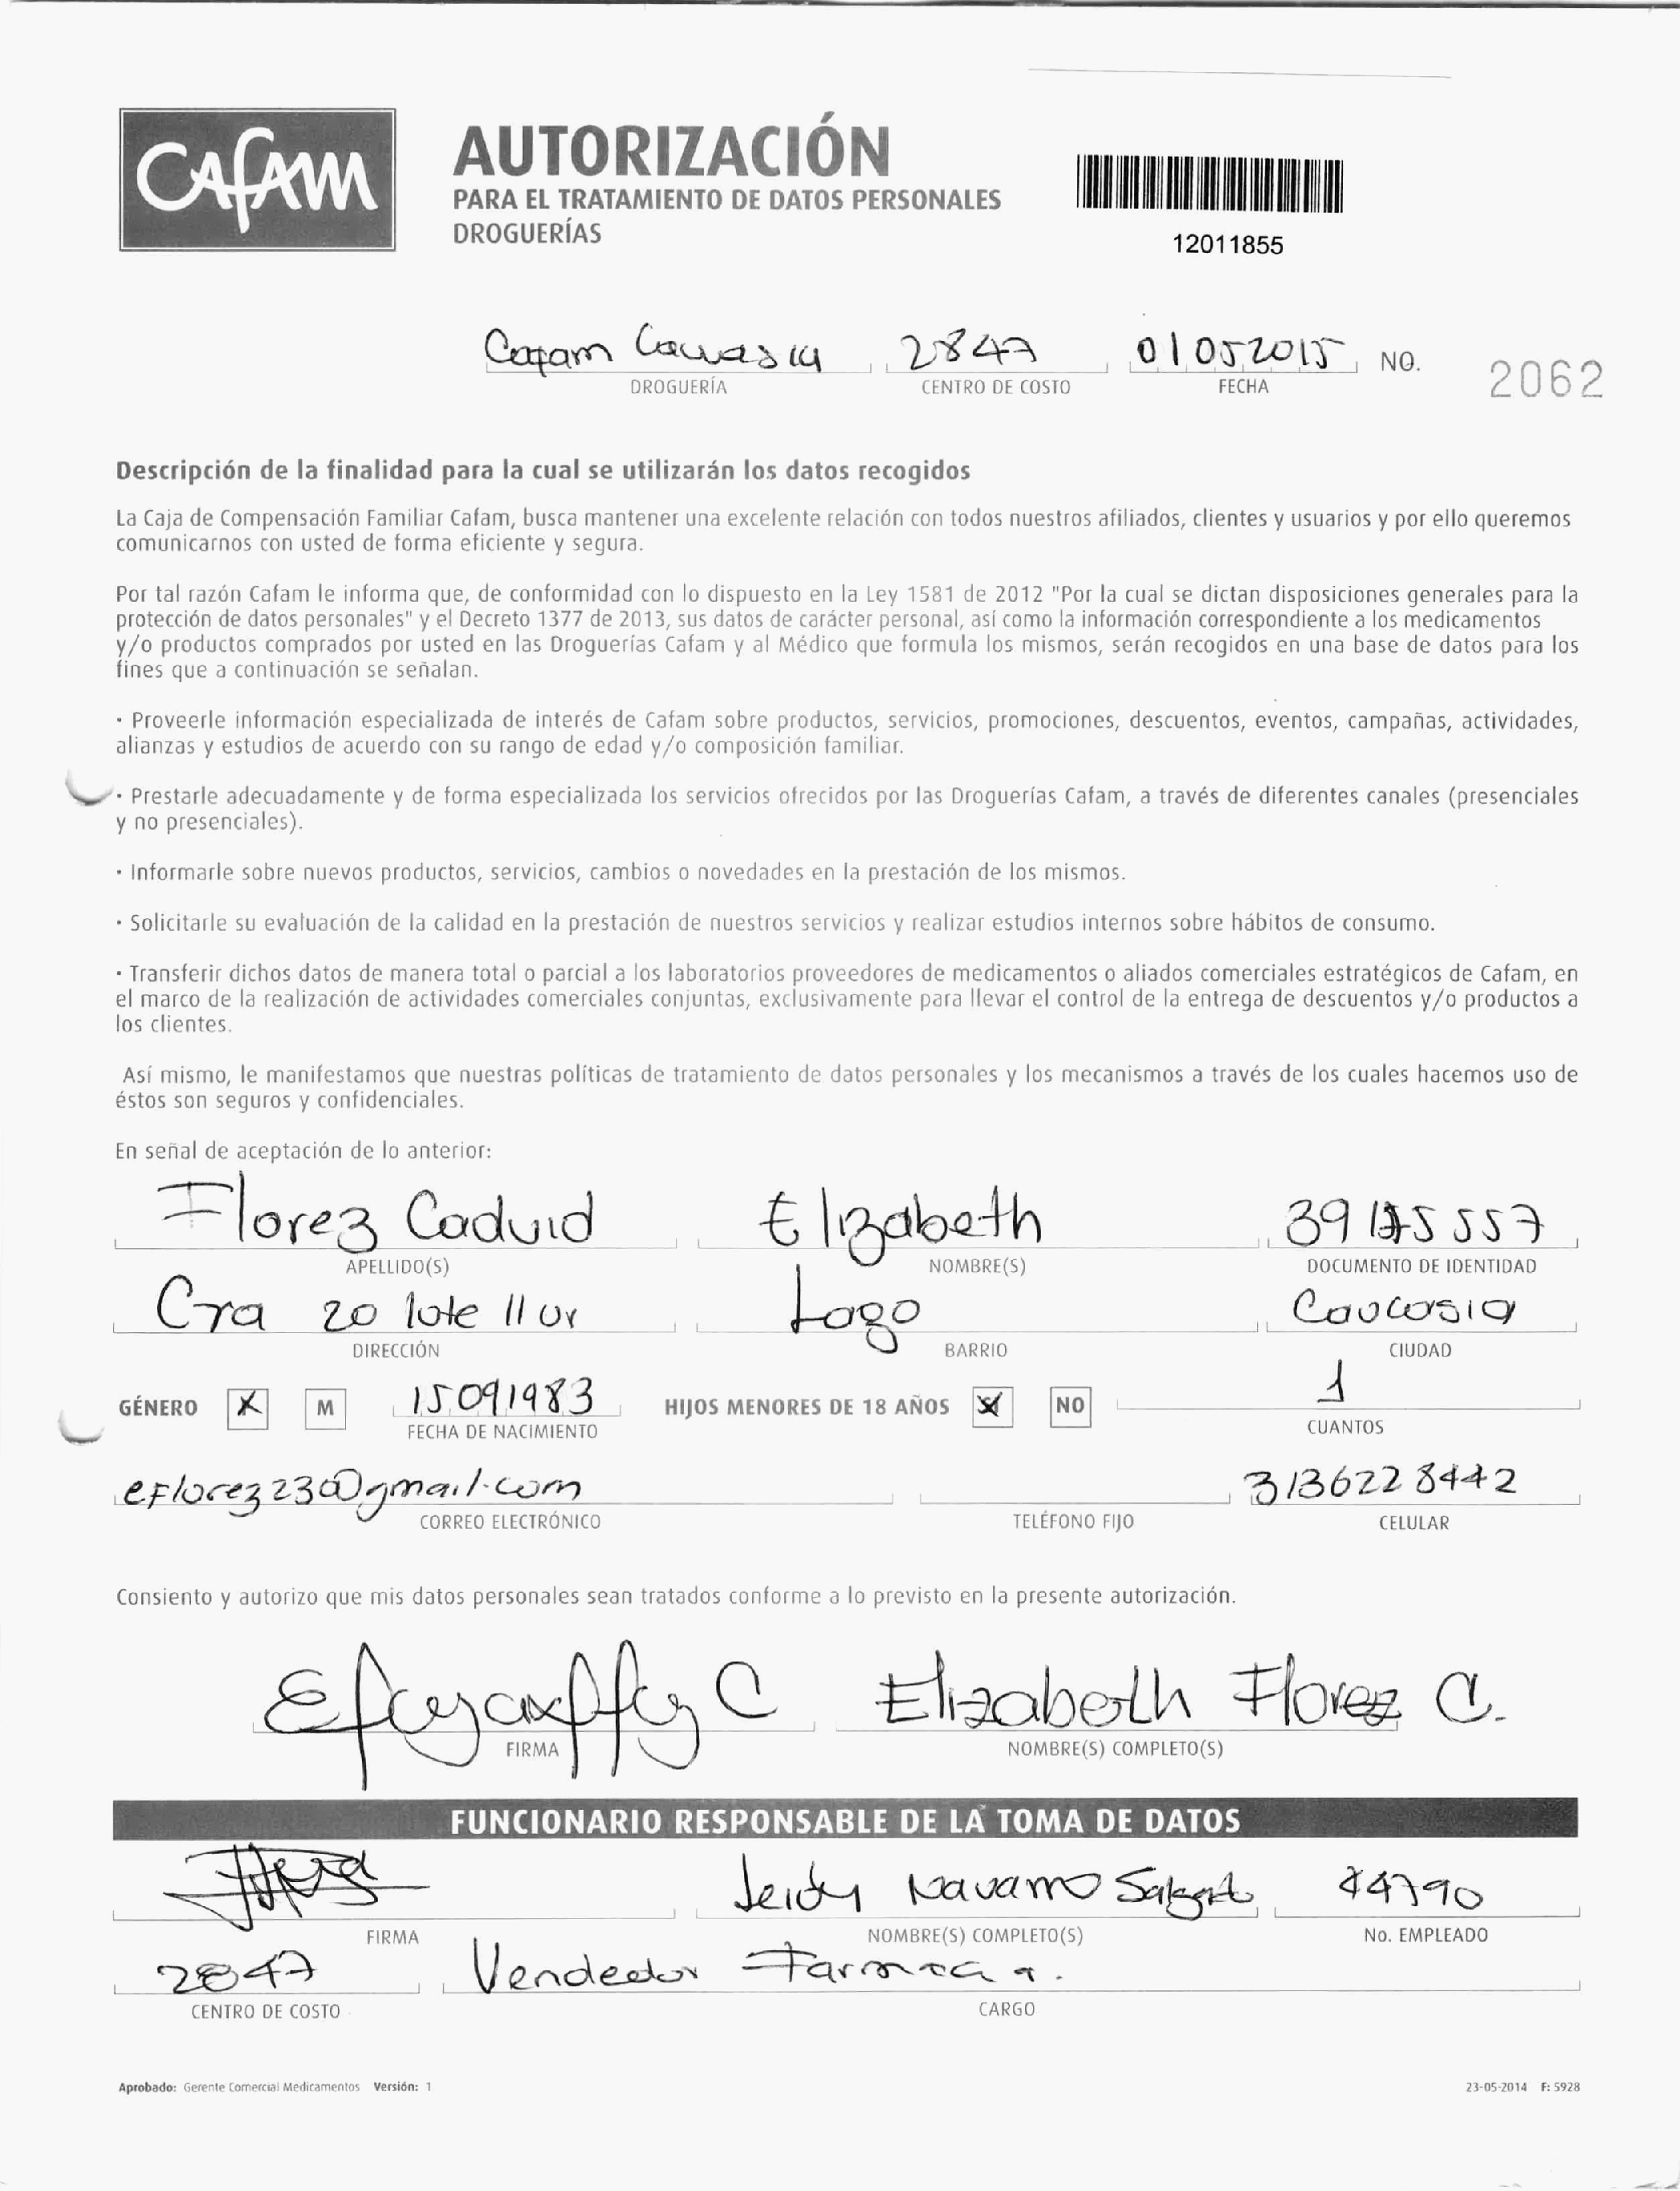 CAFAM
AUTORIZACIÓN
PARA EL TRATAMIENTO DE DATOS PERSONALES
DROGUERÍAS
12011855
Cafam Caucasia 2847 01052015 NO. 2062
DROGUERÍA CENTRO DE COSTO FECHA
Descripción de la finalidad para la cual se utilizarán los datos recogidos
La Caja de Compensación Familiar Cafam, busca mantener una excelente relación con todos nuestros afiliados, clientes y usuarios y por ello queremos
comunicarnos con usted de forma eficiente y segura.
Por tal razón Cafam le informa que, de conformidad con lo dispuesto en la Ley 1581 de 2012 "Por la cual se dictan disposiciones generales para la
protección de datos personales" y el Decreto 1377 de 2013, sus datos de carácter personal, así como la información correspondiente a los medicamentos
y/o productos comprados por usted en las Droguerías Cafam y al Médico que formula los mismos, serán recogidos en una base de datos para los
fines que a continuación se señalan.
· Proveerle información especializada de interés de Cafam sobre productos, servicios, promociones, descuentos, eventos, campañas, actividades,
alianzas y estudios de acuerdo con su rango de edad y/o composición familiar.
· Prestarle adecuadamente y de forma especializada los servicios ofrecidos por las Droguerías Cafam, a través de diferentes canales (presenciales
y no presenciales).
· Informarle sobre nuevos productos, servicios, cambios o novedades en la prestación de los mismos.
· Solicitarle su evaluación de la calidad en la prestación de nuestros servicios y realizar estudios internos sobre hábitos de consumo.
· Transferir dichos datos de manera total o parcial a los laboratorios proveedores de medicamentos o aliados comerciales estratégicos de Cafam, en
el marco de la realización de actividades comerciales conjuntas, exclusivamente para llevar el control de la entrega de descuentos y/o productos a
los clientes.
Así mismo, le manifestamos que nuestras políticas de tratamiento de datos personales y los mecanismos a través de los cuales hacemos uso de
éstos son seguros y confidenciales.
En señal de aceptación de lo anterior:
Florez Caduid Elizabeth
APELLIDO(S) NOMBRE(S) DOCUMENTO DE IDENTIDAD
Cra 20 lote 11 Lago Caucasia
DIRECCIÓN BARRIO CIUDAD
GÉNERO X M 15091983 HIJOS MENORES DE 18 AÑOS X NO 1
FECHA DE NACIMIENTO CUANTOS
eflorez23@gmail.com 3136228442
CORREO ELECTRÓNICO TELÉFONO FIJO CELULAR
Consiento y autorizo que mis datos personales sean tratados conforme a lo previsto en la presente autorización.
Elizabeth Florez C.
FIRMA NOMBRE(S) COMPLETO(S)
FUNCIONARIO RESPONSABLE DE LA TOMA DE DATOS
Leidy Navarro Salgado
FIRMA NOMBRE(S) COMPLETO(S) No. EMPLEADO
2847 Vendedor
CENTRO DE COSTO CARGO
Aprobado: Gerente Comercial Medicamentos Versión: 1 23-05-2014 F: 5928